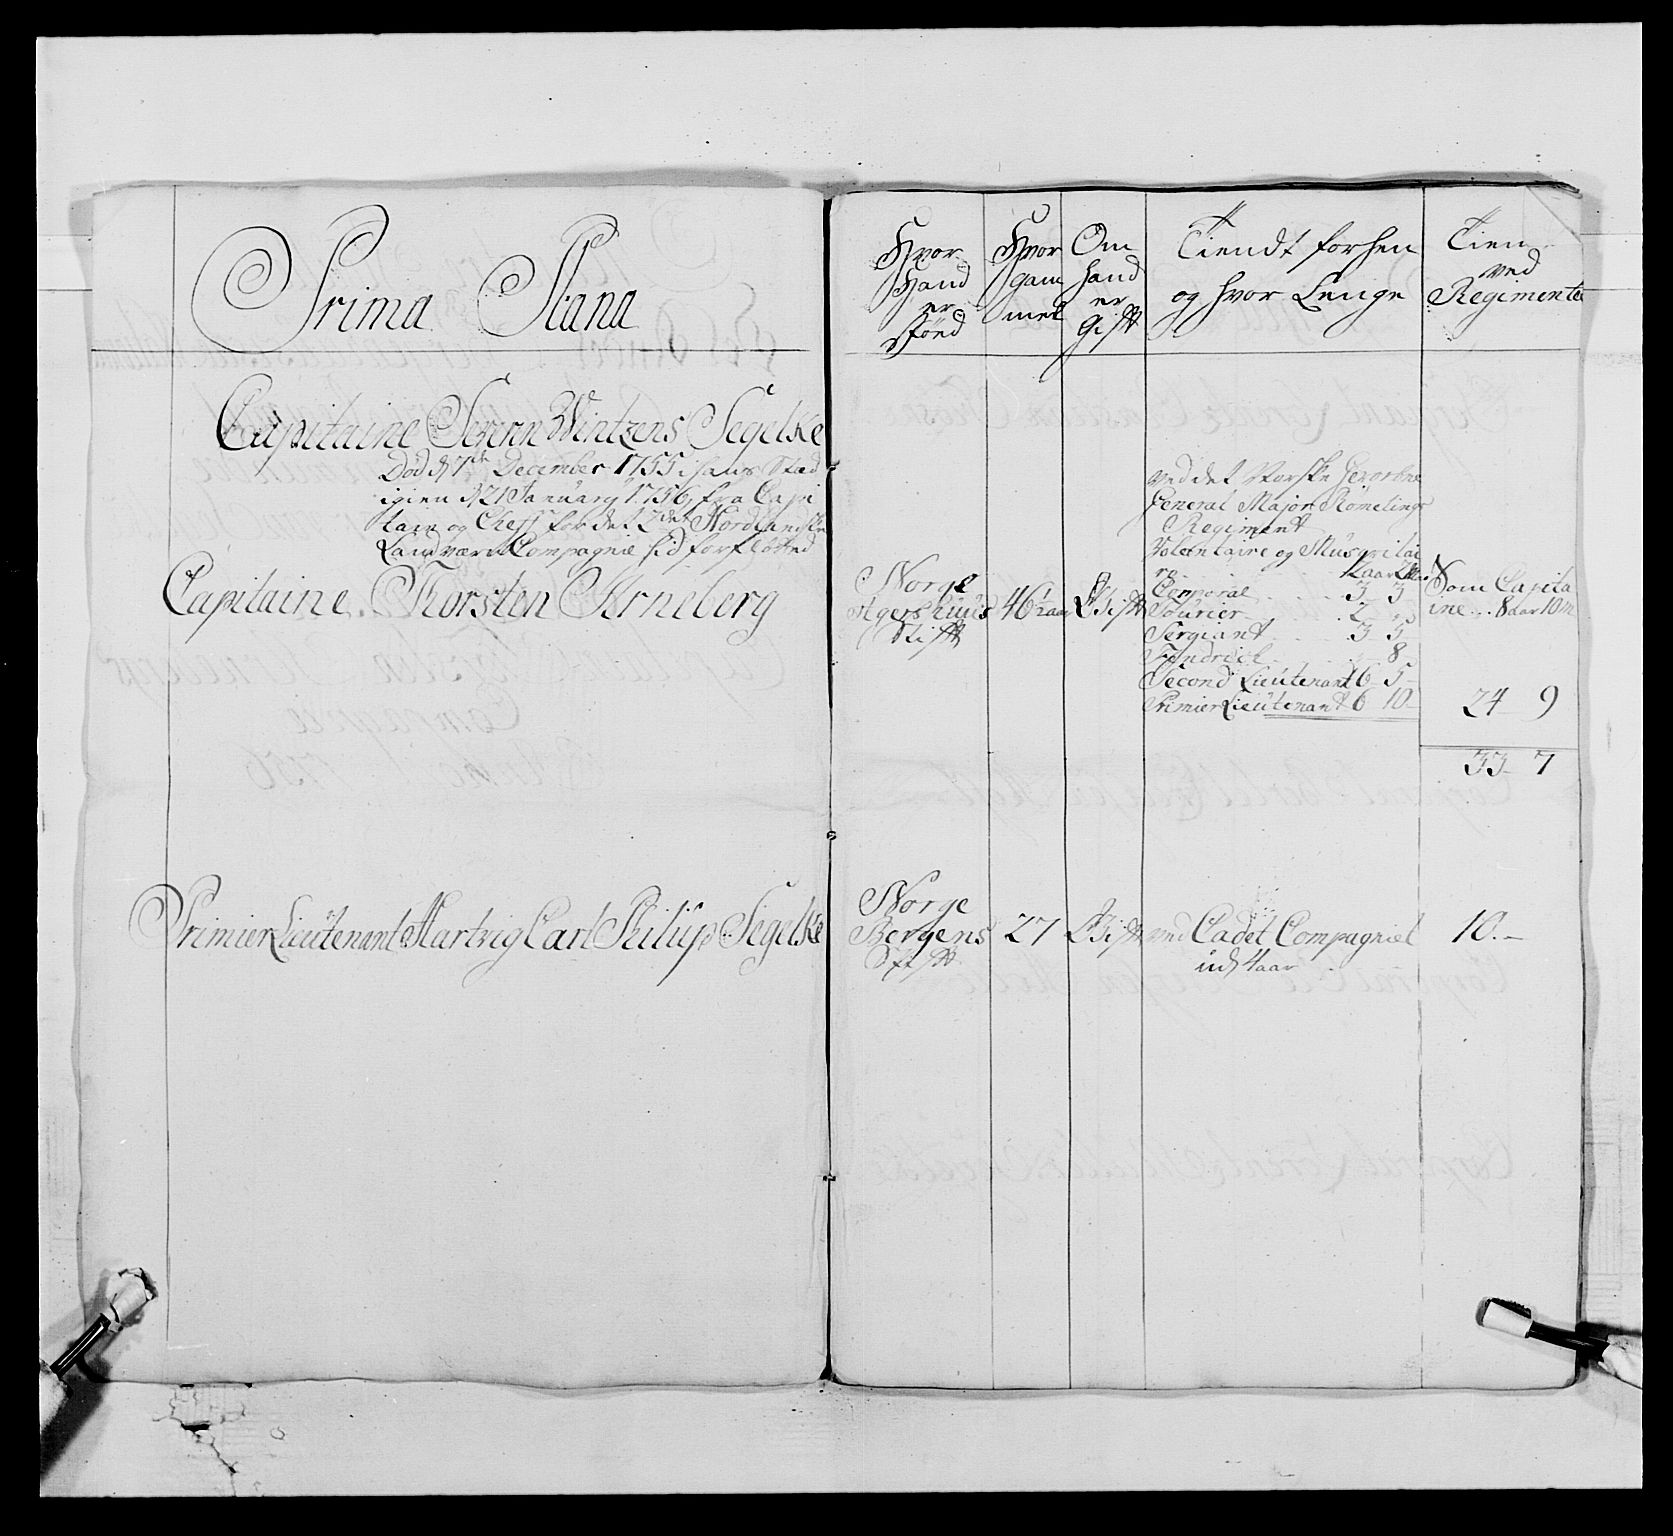 Prima Plana
Capitaine Severin Wintzens Segelke
Død d 7de December 1755 i hans Stæd
igien d 21 January 1756, fra Capi
tain og Cheff for det 2det Nordlandske
Landværn Compagnie hid forfløtted
Capitaine Thorsten Arneberg
Primier Lieutenant Hartvig Carl Philip Segelke
Hvor
Hand
er
fød
Hvor
gam
mel
Om
hand
er
Gift
Tiendt forhen
og hvor Lenge
Tien
ved
Regimentet
ved det Norske
General Major Rømelings
Regiment
Volentaire og Musqvitai
re 1 aar
Corporal 3 3
Fourier 2
Sergiant 3 5
Fendrich 8
Second Lieutenant 6 5
Primier Lieutenant 6 10
Norge
Agershuus
Stift
46 1/2 aar
Gift
Som Capita
ine 8 aar 10 m
24 9
33 7
Norge
Bergens
Stift
27
Gift
ved Cadet Compagniet
udj 4 aar
10.